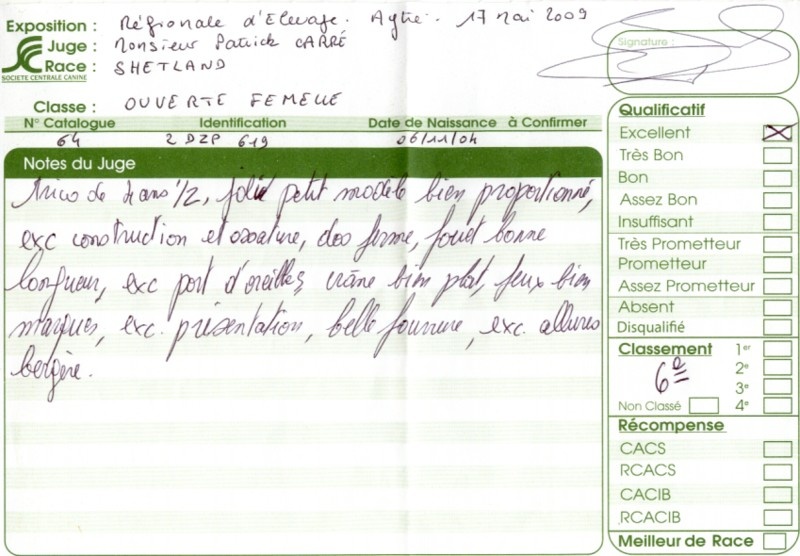 Exposition : Régionale d'Elevage. Aytré. 17 mai 2009
Juge : Monsieur Patrick CARRÉ
Race : SHETLAND
SOCIETE CENTRALE CANINE
Signature :
Classe : OUVERTE FEMELLE
N° Catalogue Identification Date de Naissance à Confirmer
64 2 DZP 619 06/11/04
Notes du Juge
Trico de 4 ans 1/2, jolie petit modèle bien proportionné,
exc construction et ossature, dos ferme, fouet bonne
longueur, exc port d'oreilles, crâne bien plat, feux bien
marques, exc. présentation, belle fourrure, exc. allures
bergère.
Qualificatif
Excellent
Très Bon
Bon
Assez Bon
Insuffisant
Très Prometteur
Prometteur
Assez Prometteur
Absent
Disqualifié
Classement 1er
6e 2e
3e
Non Classé 4e
Récompense
CACS
RCACS
CACIB
RCACIB
Meilleur de Race